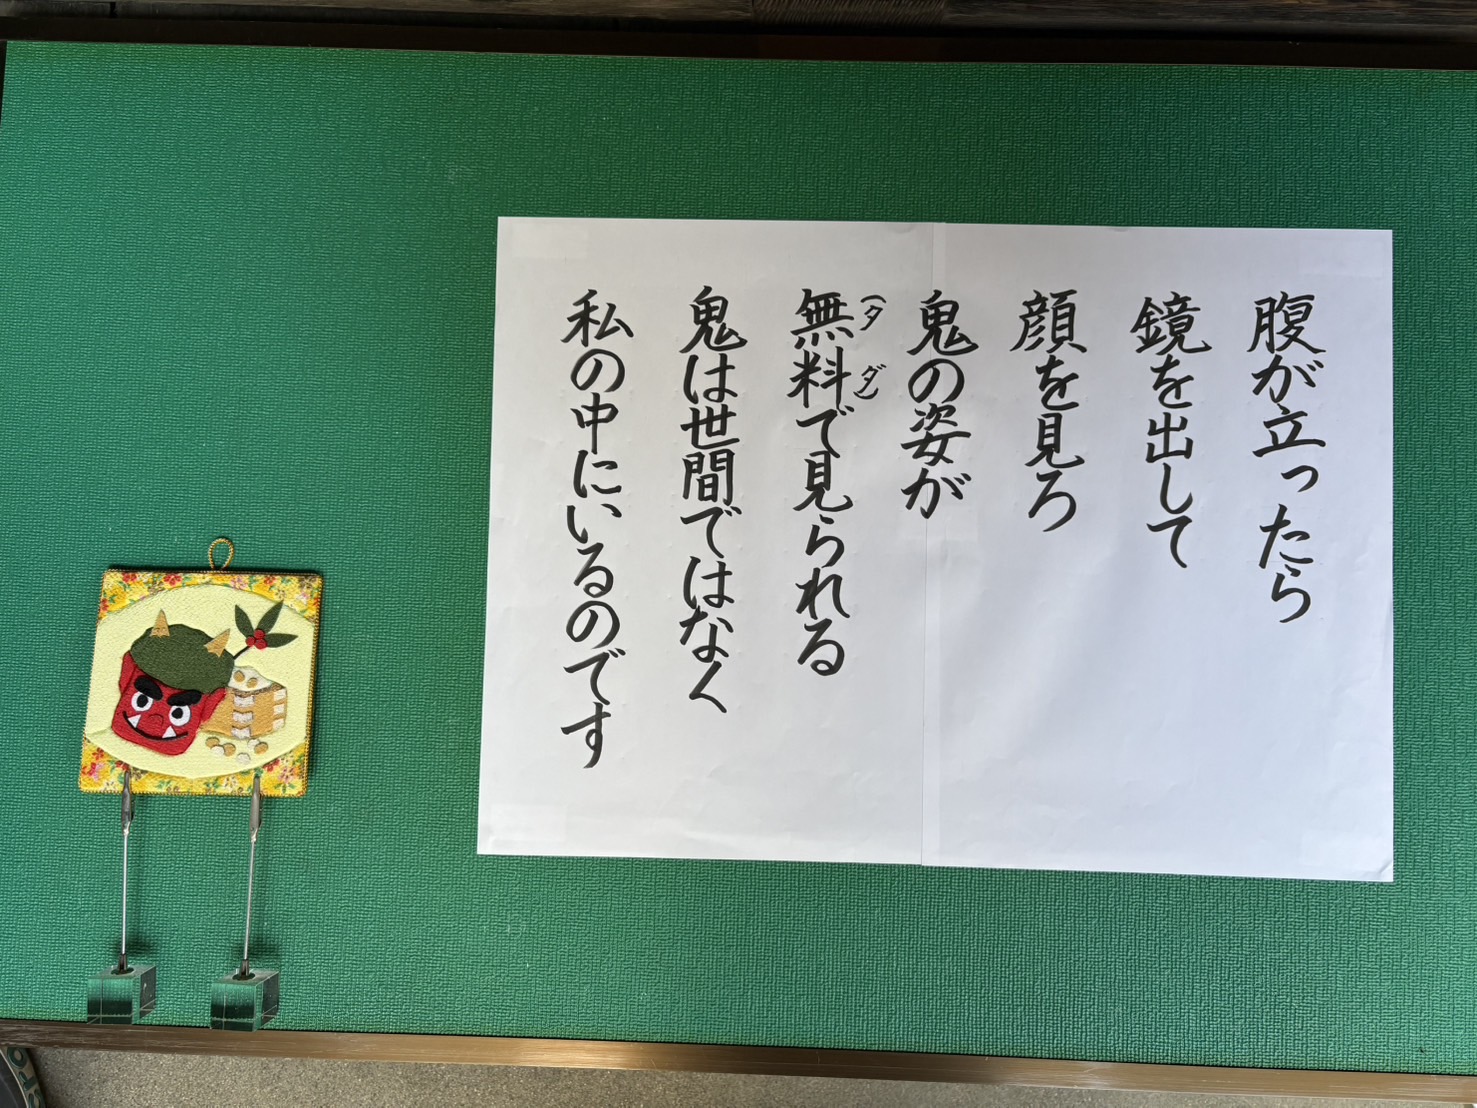 腹が立ったら
鏡を出して
顔を見ろ
鬼の姿が
無料(タダ)で見られる
鬼は世間ではなく
私の中にいるのです